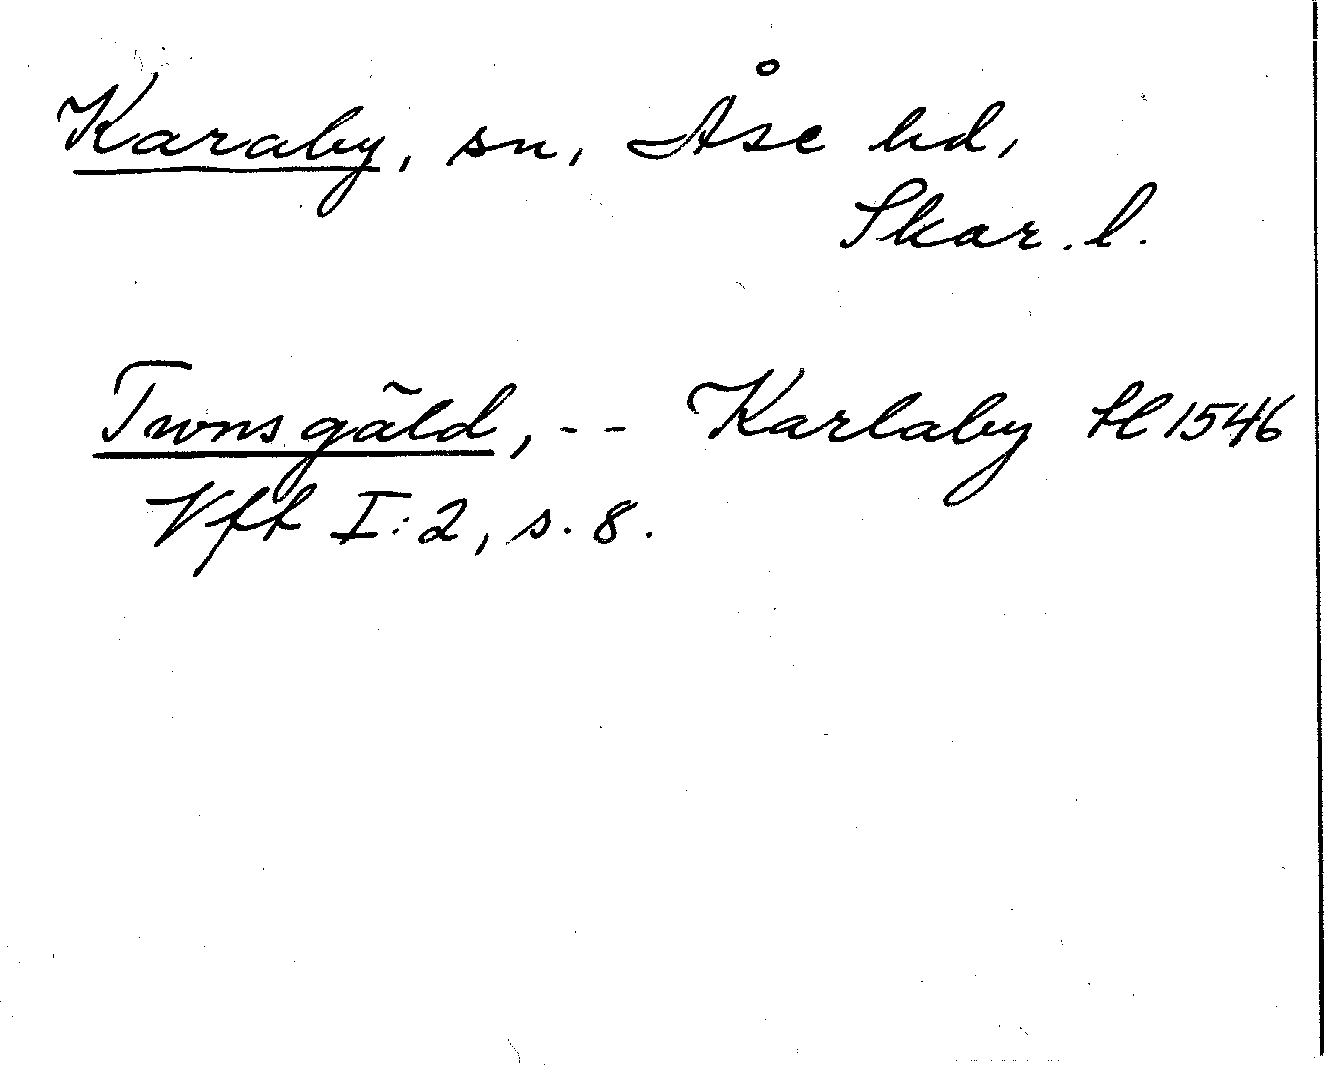 Karaby, sn, Åse hd,
Skar. l.
Twnsgäld, -- Karlaby H 1546
Vff I:2, s. 8.